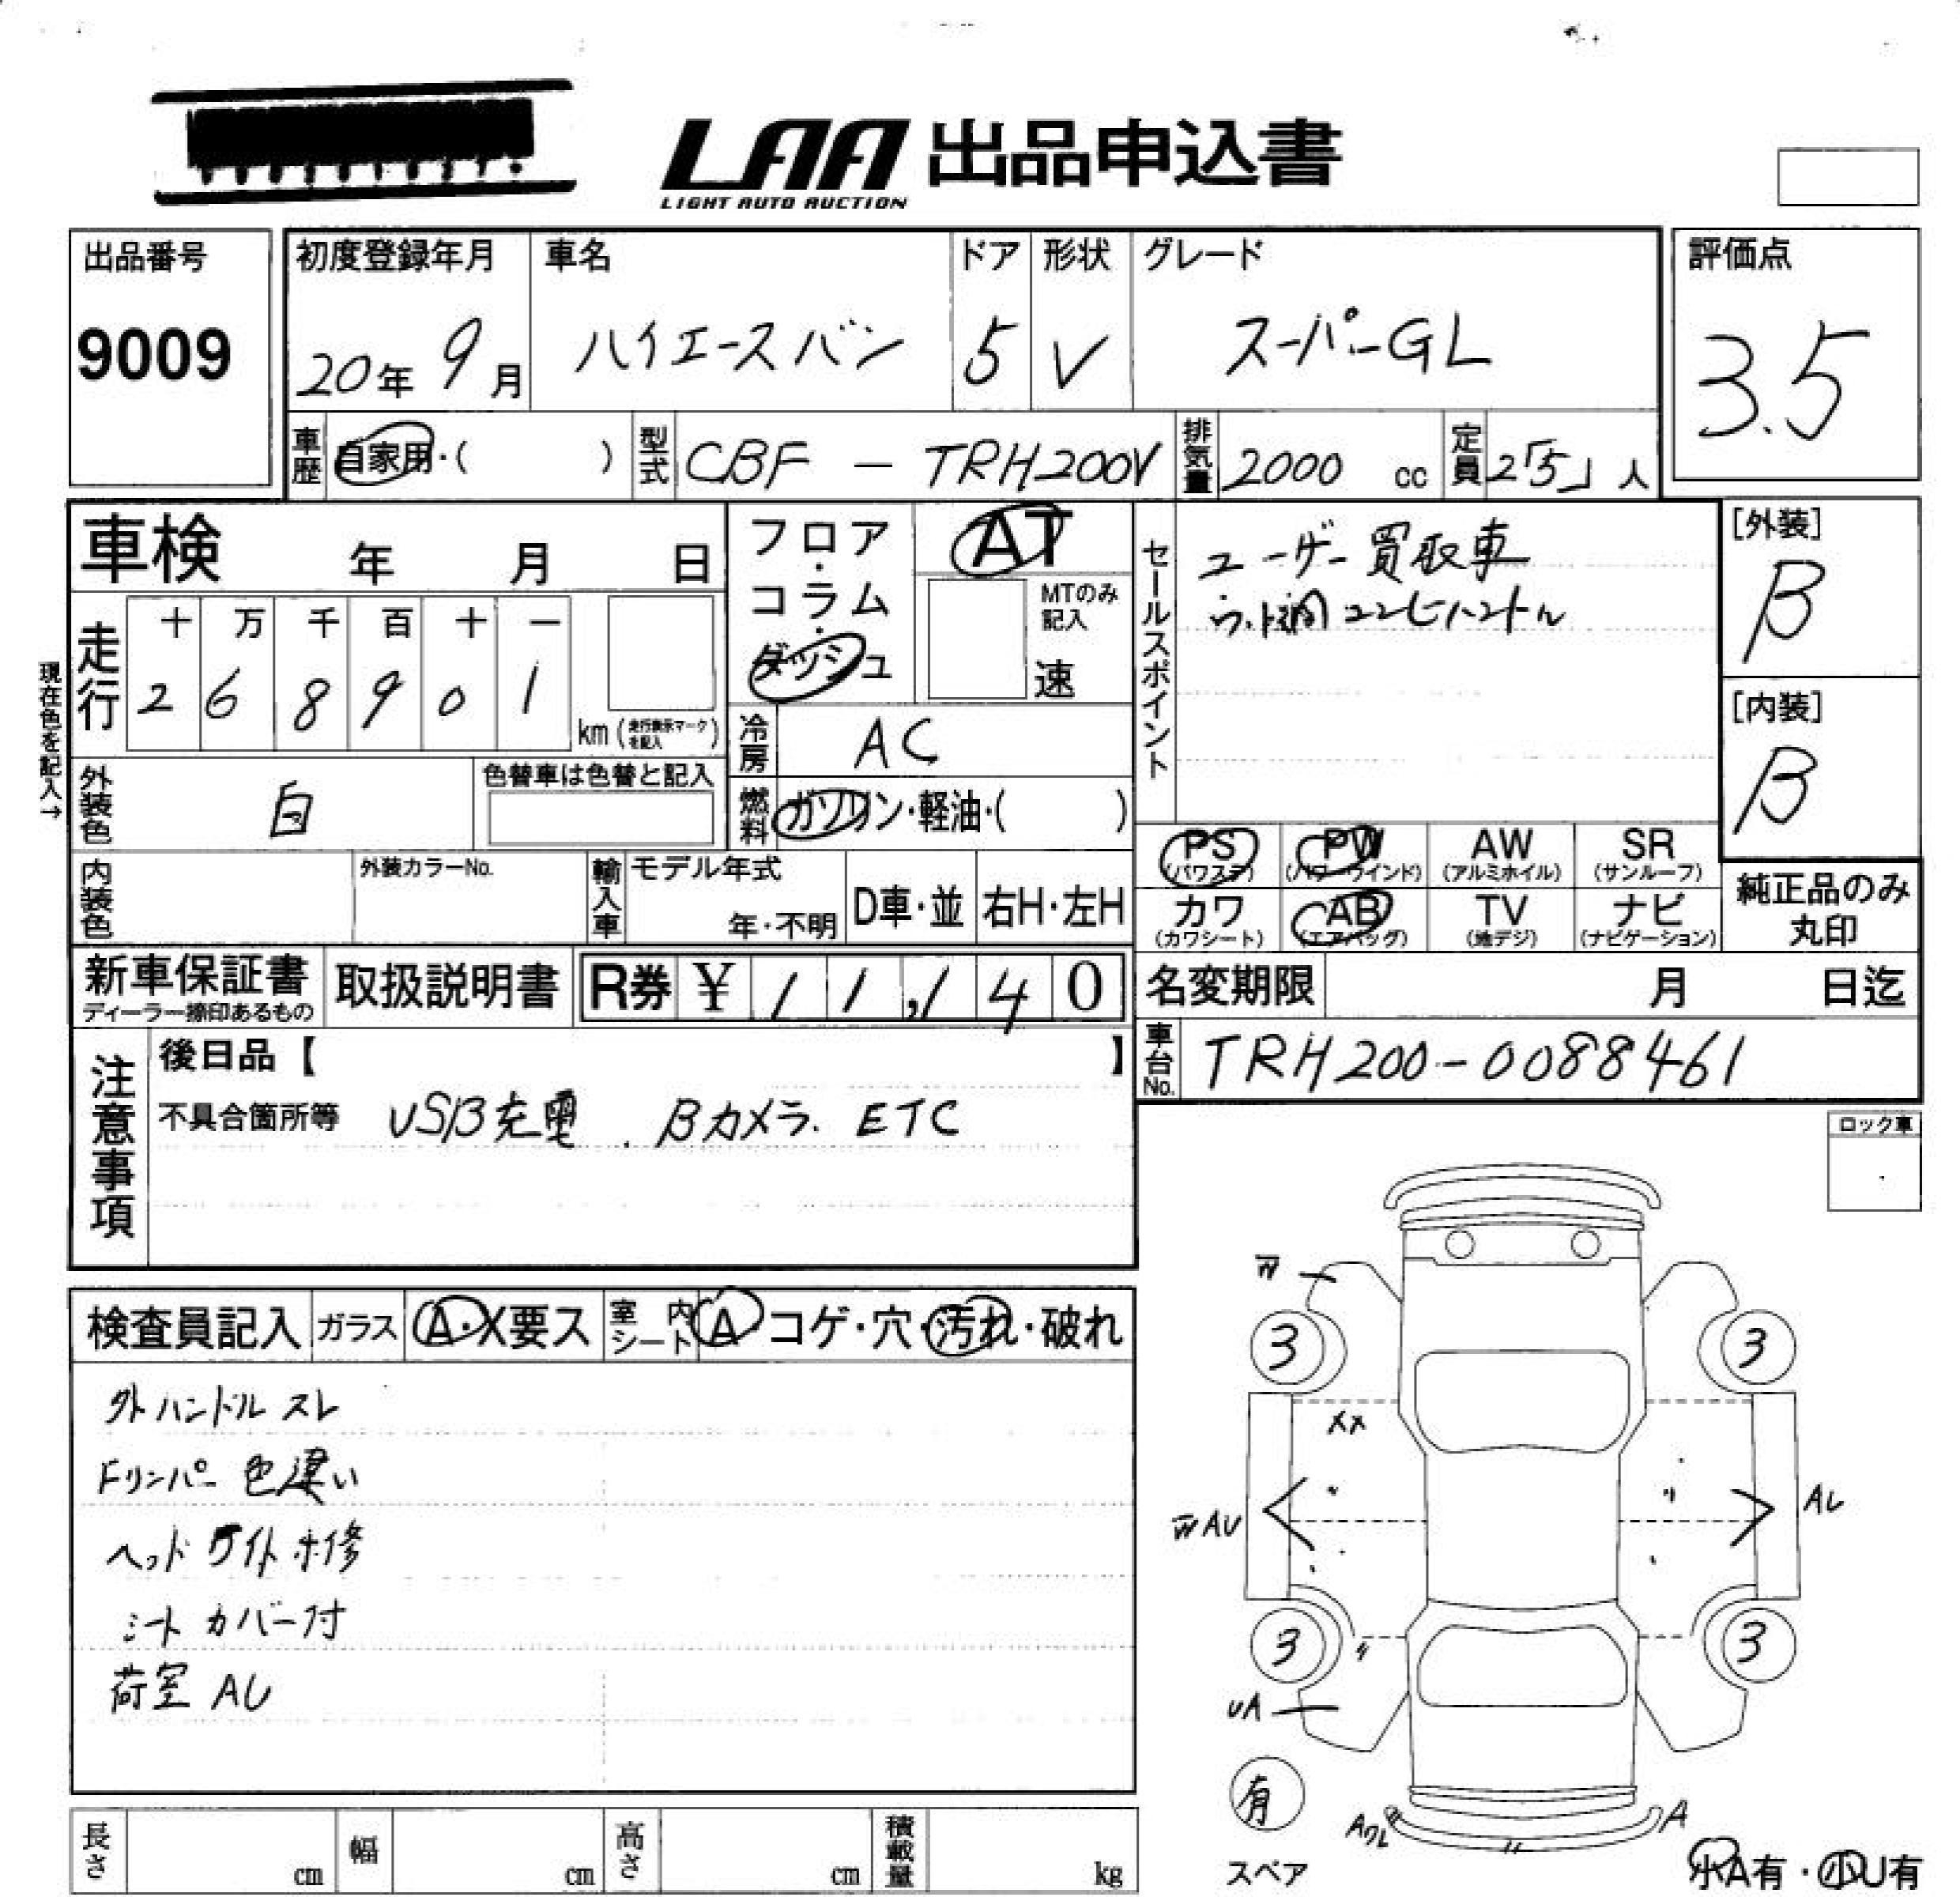 LAA 出品申込書
LIGHT AUTO AUCTION
出品番号
9009
初度登録年月
20年 9月
車名
ハイエースバン
ドア
5
形状
V
グレード
スーパーGL
評価点
3.5
車歴
自家用・( )
型式
CBF - TRH200V
排気量
2000 cc
定員
2「5」人
車検 年 月 日
フロア・コラム・ダッシュ
AT
MTのみ記入
速
セールスポイント
ユーザー買取車
[外装]
B
[内装]
B
現在色を記入→
走行
十 万 千 百 十 一
2 6 8 9 0 1
km (走行表示マークを記入)
冷房
AC
外装色
白
色替車は色替と記入
燃料
ガソリン・軽油・( )
PS (パワステ)
PW (パワーウインド)
AW (アルミホイル)
SR (サンルーフ)
カワ (カワシート)
AB (エアバッグ)
TV (地デジ)
ナビ (ナビゲーション)
純正品のみ
丸印
内装色
外装カラーNo.
輸入車
モデル年式
年・不明
D車・並
右H・左H
新車保証書
ディーラー捺印あるもの
取扱説明書
R券 ¥ 11,140
名変期限 月 日迄
車台No.
TRH200-0088461
注意事項
後日品【 】
不具合箇所等 USB充電. Bカメラ. ETC
ロック車
検査員記入
ガラス
A・X要ス
室内シート
A コゲ・穴・汚れ・破れ
外ハンドルスレ
Fリンパー 色違い
ヘッドライト補修
シートカバー付
荷室 AU
W
3
3
XX
〃
〃
WAU
AU
3
3
〃
UA
有
スペア
A
〃
小A有・小U有
長さ cm
幅 cm
高さ cm
積載量 kg